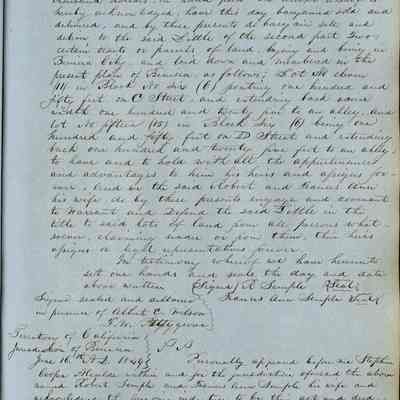 thousand dollars, in hand paid the receipt whereof is
hereby acknowledged, have this day bargained sold and
delivered, and by these presents do bargain sell and
deliver to the said Little of the second part two
certain Lots or parcels of land, lying and being in
Benicia City, and laid down and numbered in the
present plan of Benicia, as follows; Lot No eleven
(11) in Block No six (6) fronting one hundred and
fifty feet on C Street, and extending back same
width one hundred and twenty five to an alley, and
Lot No fifteen (15) in Block Six (6) being one
hundred and fifty feet on D Street and extending
back one hundred and twenty five feet to an alley,
to have and to hold with all the appurtenances
and advantages to him his heirs and assigns for-
ever; And we the said Robert and Frances Ann
his wife do by these presents engage and covenant
to Warrant and defend the said Little in the
title to said lots of land from all persons what-
soever, claiming under or from them, their heirs
assigns or legal representatives forever.
In testimony whereof we have hereunto
set our hands and seals the day and date
above written (Signed) R Semple (Seal)
Signed sealed and delivered Frances Ann Semple (Seal)
in presence of Albert C. Wilson
Territory of California
Jurisdiction of Benicia } S S
June 16th A.D. 1849 Personally appeared before me Stephen
Cooper Alcalde within and for the jurisdiction aforesaid the above
named Robert Semple and Frances Ann Semple his wife and
acknowledged the